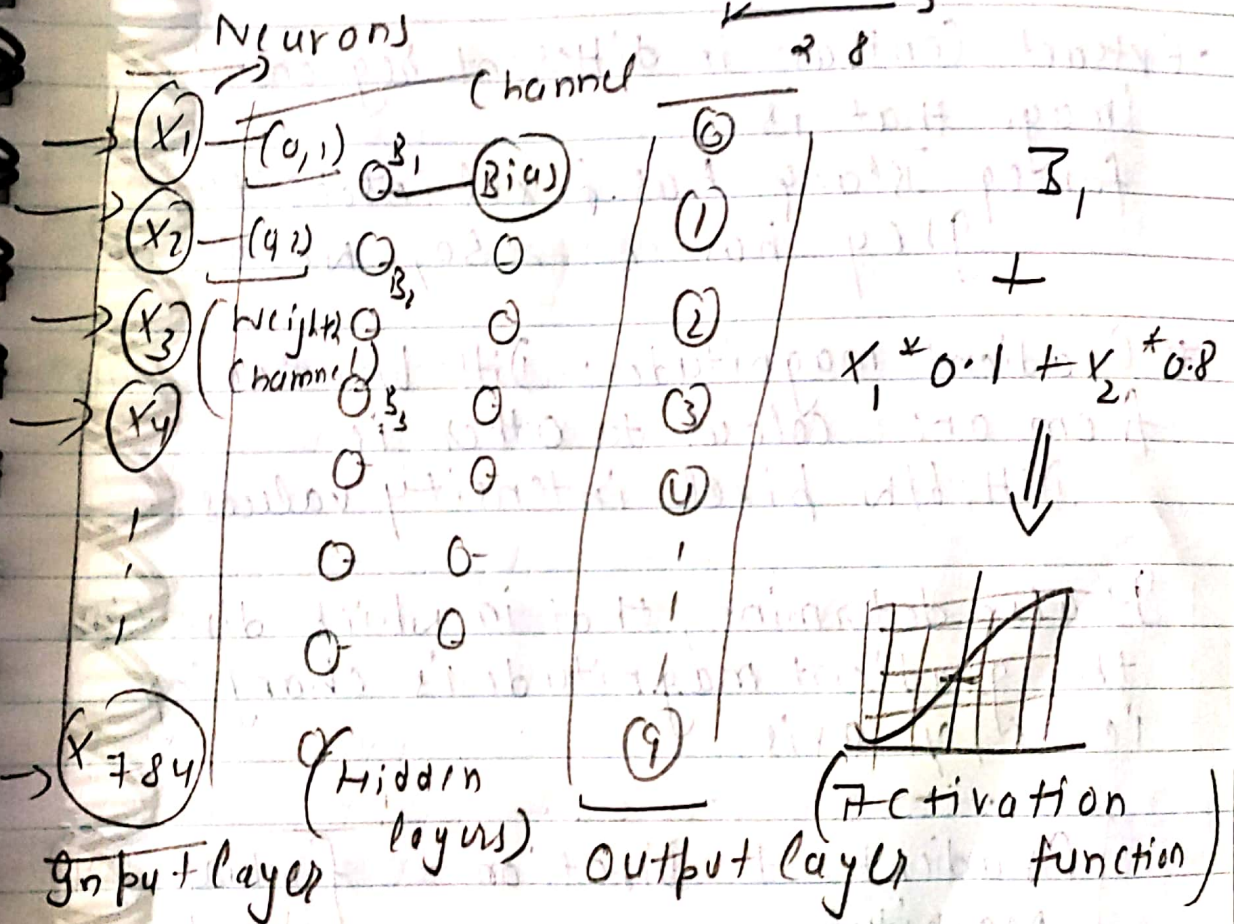 Neurons
28
Channel
X1
(0,1)
B1
Bias
X2
B2
X3
(Weighth
Channel)
X4
B3
X784
(Hidden
layers)
Input layer
0
1
2
3
4
9
Output layer
B1
+
X1 * 0.1 + X2 * 0.8
(Activation
function)